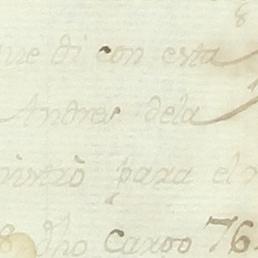 que di con esta
Andres dela
ministrò para el
8 dho Cargo 76